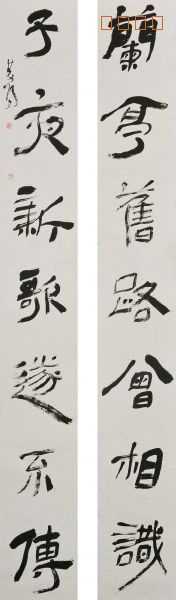 蘭亭舊路曾相識
子夜新歌遂不傳